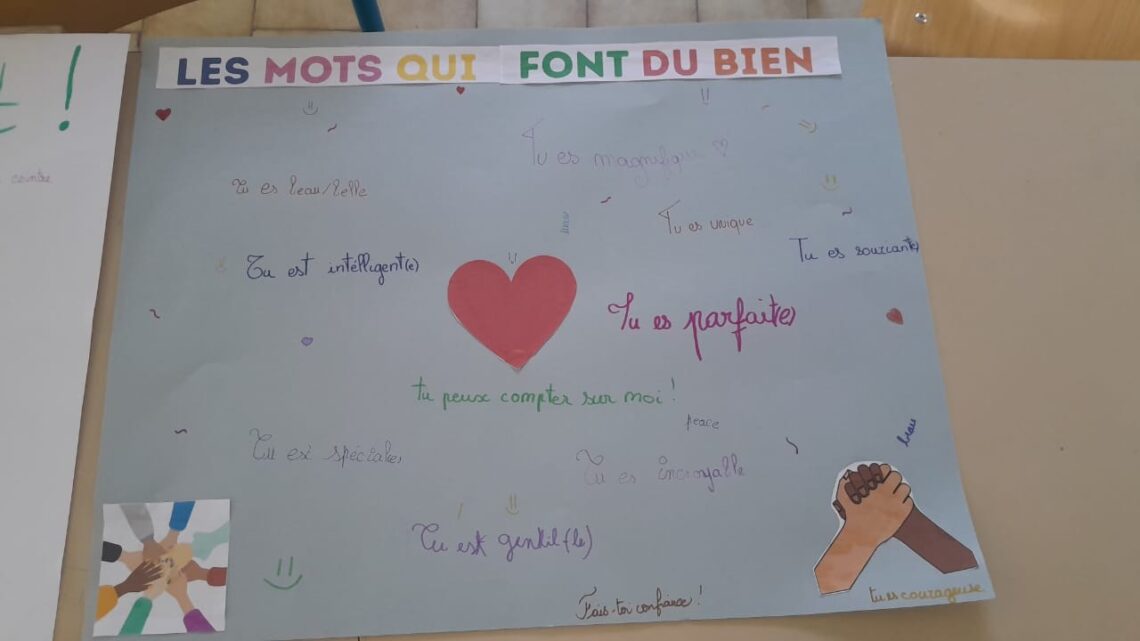 LES MOTS QUI FONT DU BIEN
Tu es magnifique
Tu es beau/belle
Tu es unique
beau
Tu es souriante
Tu est intélligent(e)
Tu es parfait(e)
tu peux compter sur moi !
peace
beau
Tu es spéciale
Tu es incroyable
Tu est gentil(le)
Fais-toi confiance !
tu es courageuse